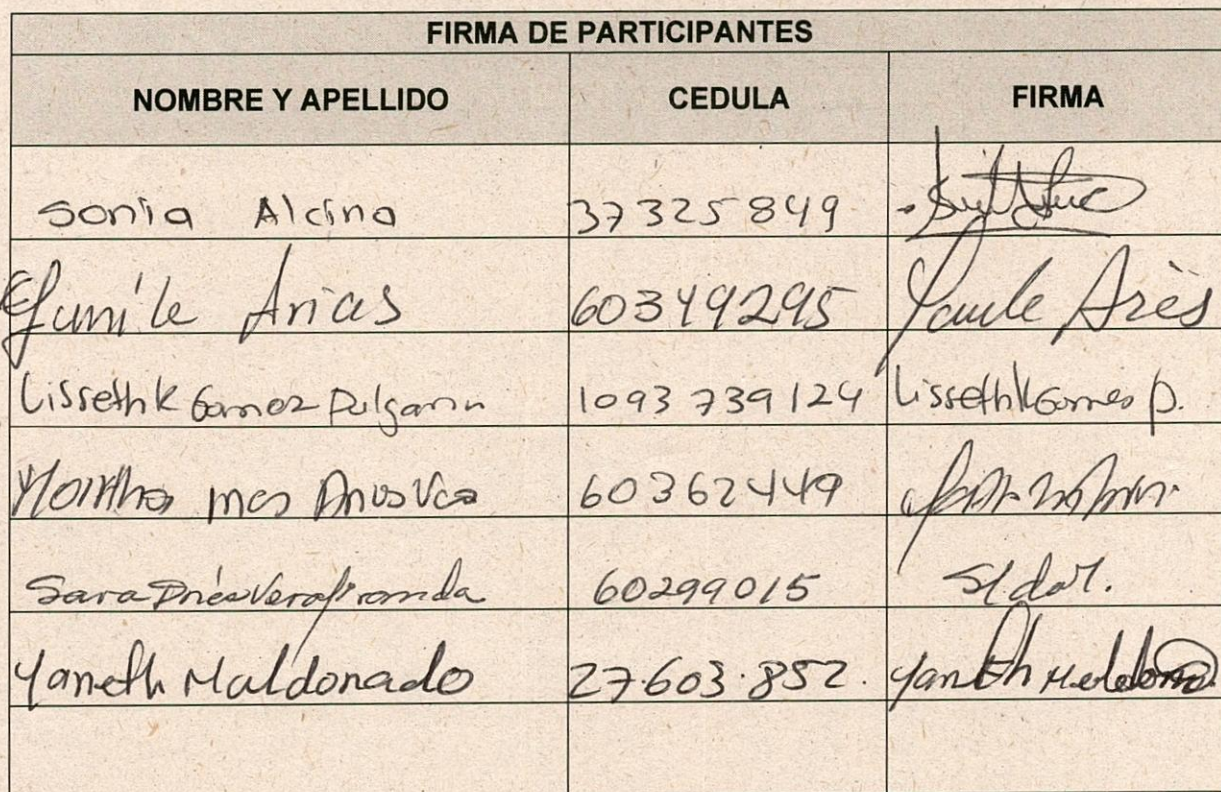 FIRMA DE PARTICIPANTES
NOMBRE Y APELLIDO CEDULA FIRMA
Sonia Alcina 37325849
Yamile Arias 60349295 Yamile Arias
Lisseth k Gomez Pulgarin 1093 739 124 Lisseth k Gomes p.
Martha 60362449
Sara Inés Vera Miranda 60299015
Yaneth Maldonado 27.603.852. Yaneth Maldonado